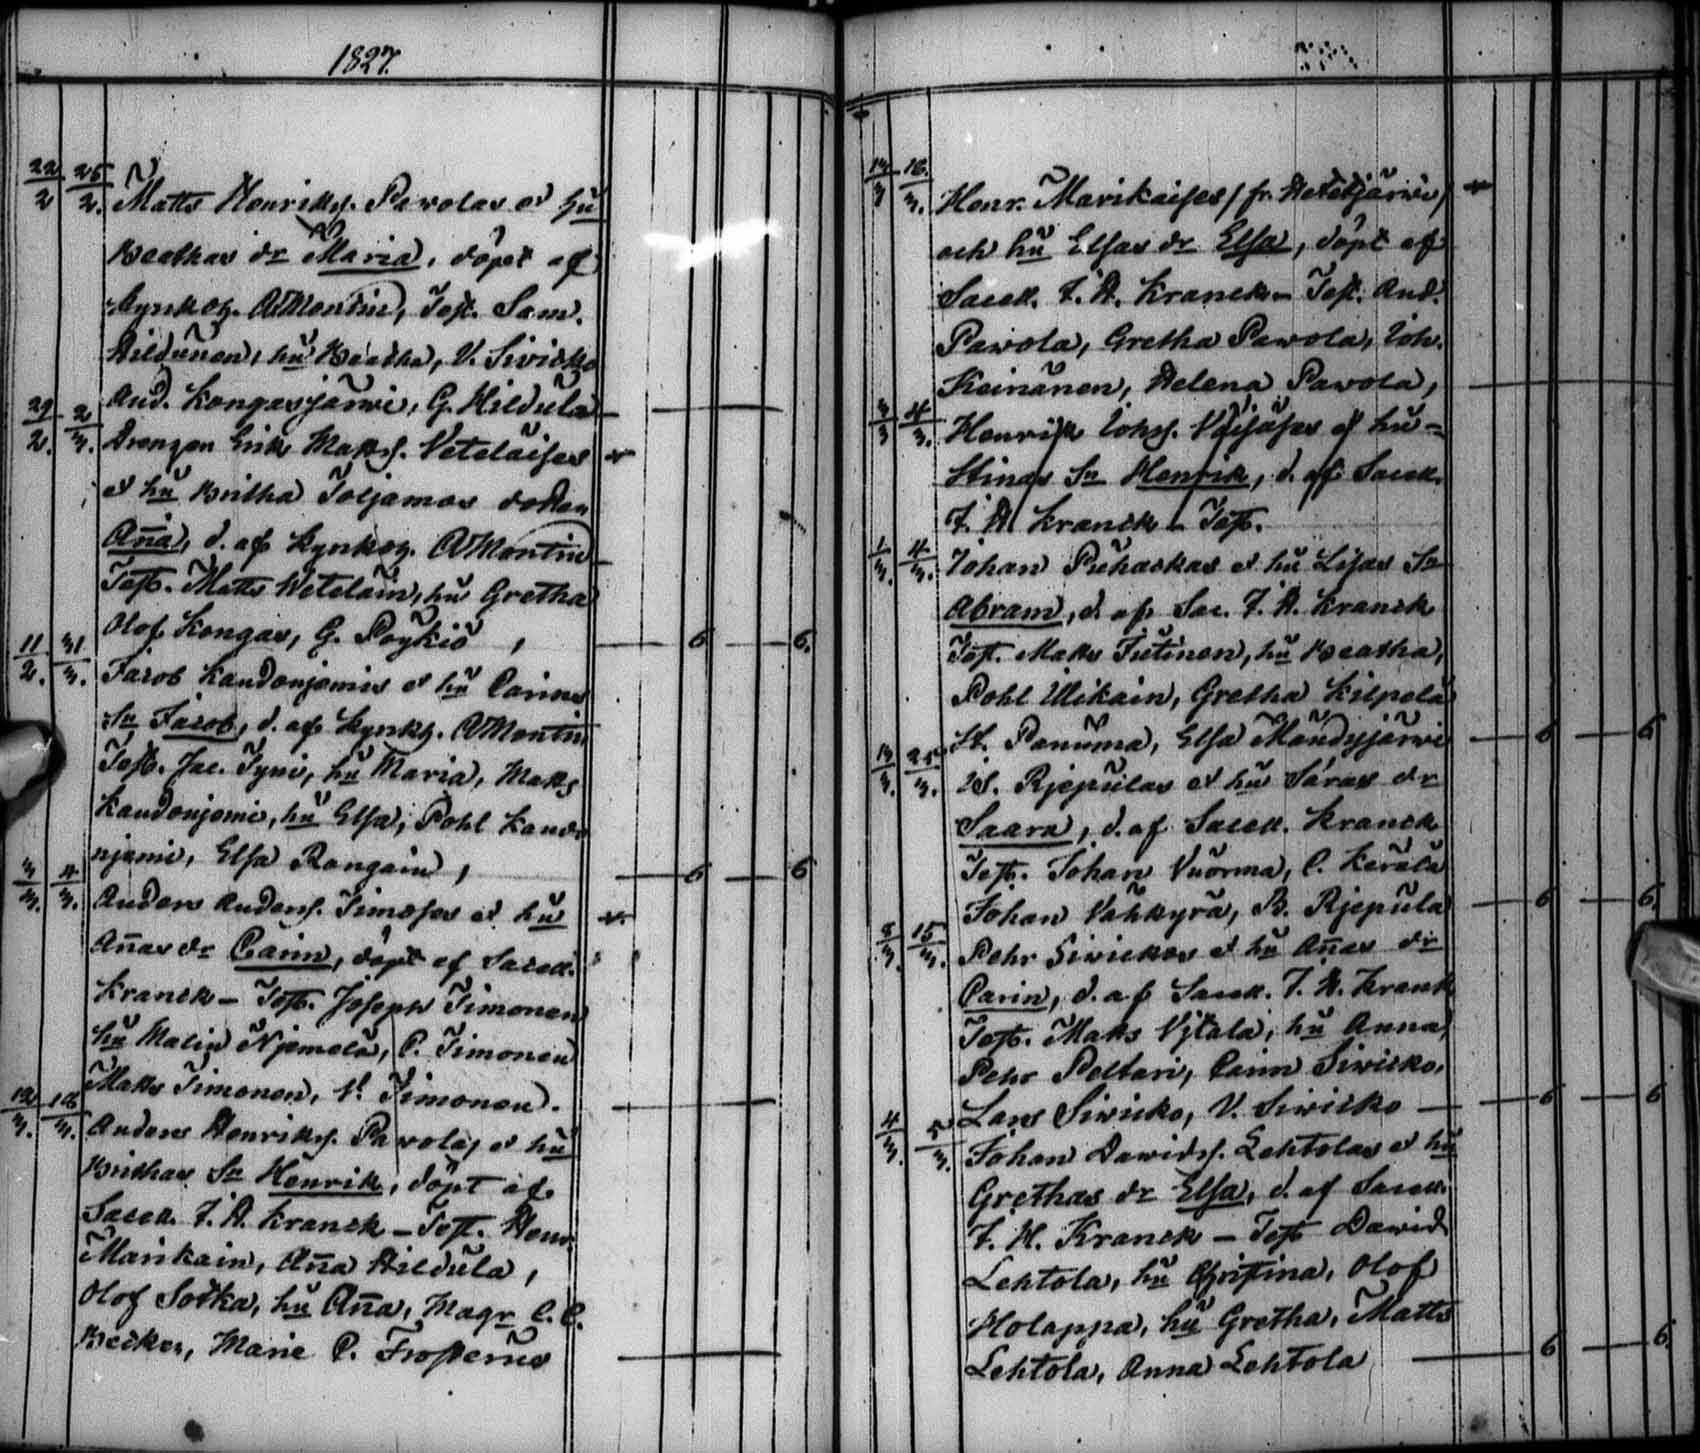 1827.
22/2 25/2. Matts Henriks. Pavolas et hu
Beathas dr Maria, döpt af
kynkog. A Montin, Test. Sam.
Hildunen, hu Beatha, V. Sivicko
And. Kongasjärwi, G. Hildula
29/2. 2/3. Drengen Erik Matts. Veteläises
et hu Britha Toljamos dotter
Aña, d. af kynkog. A Montin
Test. Matts Weteläin, hu Gretha
Olof Kongas, G. Poÿkiö, 6 6.
11/2. 31/3. Jacob Kandonjemis et hu Carins
Sn Jacob, d. af kynkg. A Montin
Test. Jac. Tyni, hu Maria, Matts
Kandonjemi, hu Elsa, Pohl Kando
njemi, Elsa Rongain, 6 6
3/3. 4/3. Anders Anders. Timoses et hu
Añas dr Carin, döpt af Sacell.
Kranck – Test. Joseph Timonen
hu Malin Njemelä, C. Timonen
Matts Timonen, V. Timonen.
12/3. 18/3. Anders Henriks. Pavolas et hu
Brithas Sn Henrik, döpt af
Sacell. J. H. Kranck – Test. Henr.
Marikain, Aña Hildula,
Olof Sotka, hu Aña, Magr C. C.
Becker, Marie C. Frosterus
13/3 16./3. Henr. Marikaises / fr. Hetetjärwi /
och hu Elsas dr Elsa, döpt af
Sacell. J. H. Kranck – Test. And.
Pavola, Gretha Pavola, Joh.
Keinänen, Helena Pavola,
3/3 4/3. Henrik Johs. Väisäses et hu
Stinas Sn Henrik, d. af Sacell.
J. H. Kranck – Test.
1/3. 4/3. Johan Puhackas et hu Lisas Sn
Abram, d. af Sac. J. H. Kranck
Test. Matts Jutinen, hu Beatha,
Pohl Mikain, Gretha Kilpelä
H. Panuma, Elsa Mändyjärwi 6 6
13/3. 25/3. Is. Rjepulas et hu Saras dr
Saara, d. af Sacell. Kranck
Test. Johan Vuorma, C. Kerälä
Johan Vähkyrä, B. Rjepula 6 6.
8/3. 15/3. Pehr Siwickos et hu Añas dr
Carin, d. af Sacell. J. H. Krank
Test. Matts Vjtala, hu Anna,
Pehr Peltari, Carin Siwicko,
Lars Siwicko, V. Siwicko 6 6
4/3. 5/3. Johan Dawids. Lehtolas et hu
Grethas dr Elsa, d. af Sacell.
J. H. Kranck – Test Dawid
Lehtola, hu Christina, Olof
Holappa, hu Gretha, Matts
Lehtola, Anna Lehtola 6 6.